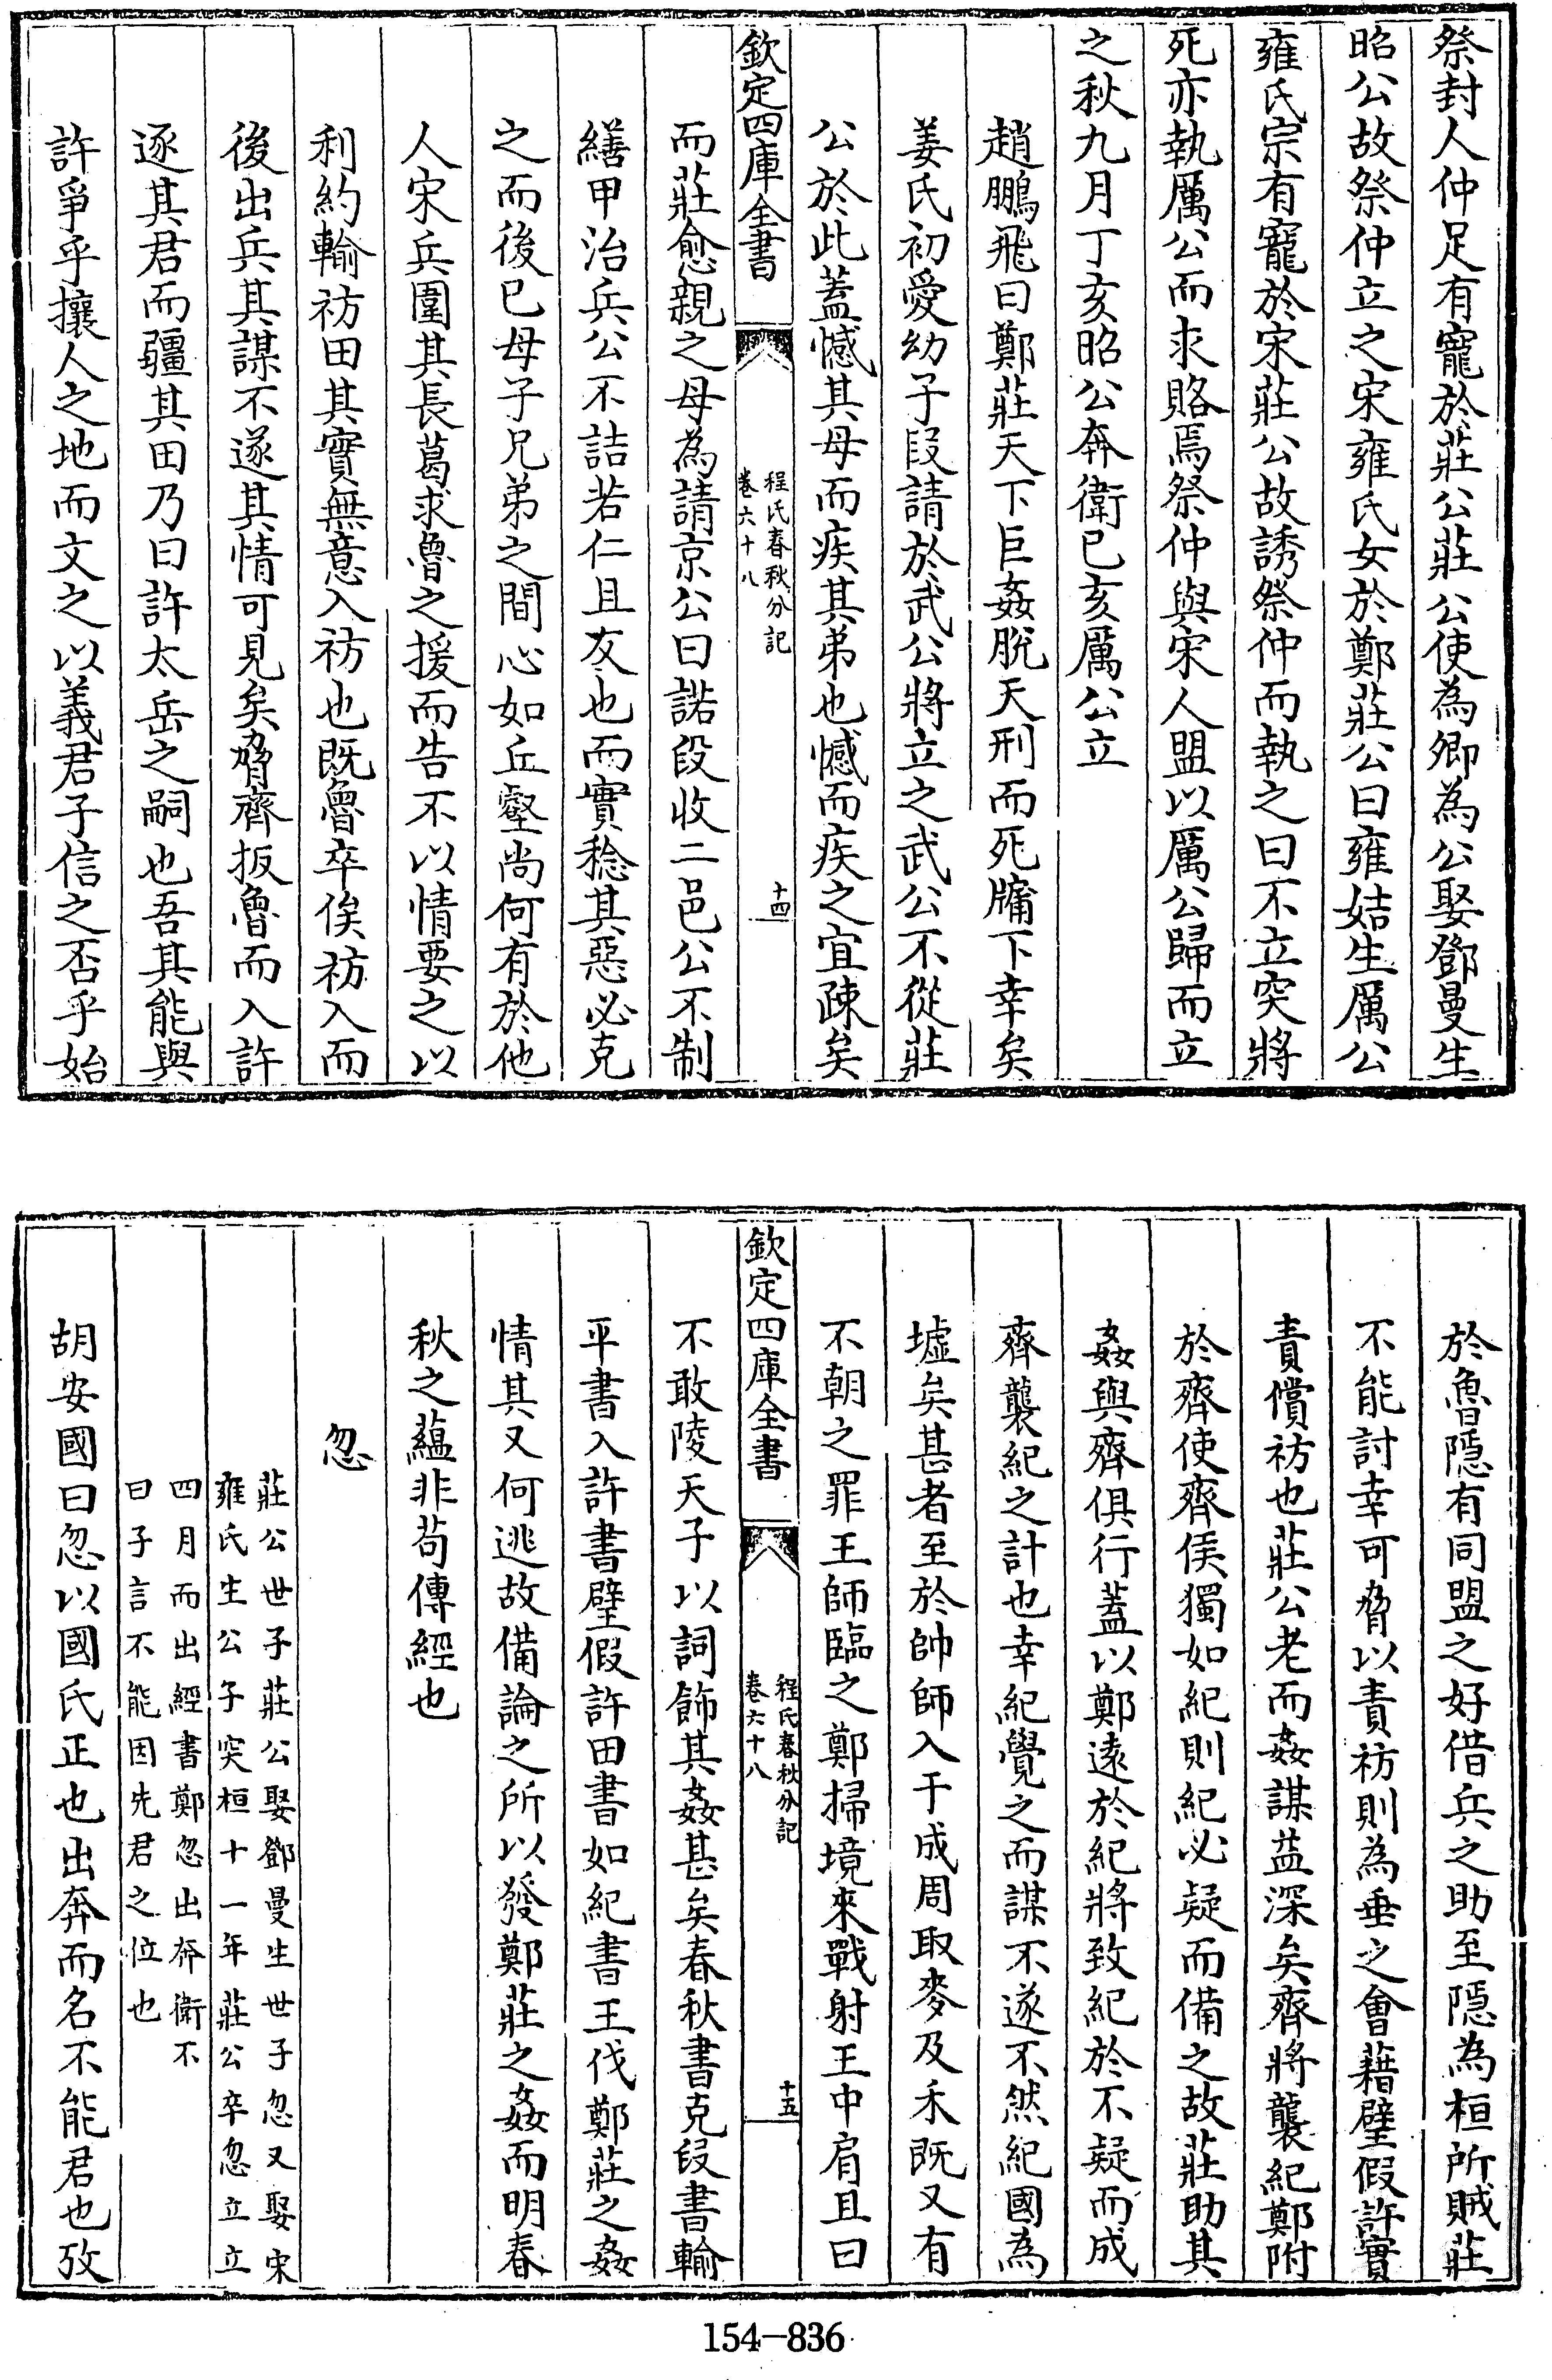 祭封人仲足有寵於莊公莊公使為卿為公娶鄧曼生
昭公故祭仲立之宋雍氏女於鄭莊公曰雍姞生厲公
雍氏宗有寵於宋莊公故誘祭仲而執之曰不立突將
死亦執厲公而求賂焉祭仲與宋人盟以厲公歸而立
之秋九月丁亥昭公奔衛已亥厲公立
趙鵬飛曰鄭莊天下巨姦脫天刑而死牖下幸矣
姜氏初愛幼子段請於武公將立之武公不從莊
公於此蓋憾其母而疾其弟也憾而疾之宜疎矣
欽定四庫全書
程氏春秋分記
卷六十八
十四
而莊愈親之母為請京公曰諾段收二邑公不制
繕甲治兵公不詰若仁且友也而實稔其惡必克
之而後已母子兄弟之間心如丘壑尚何有於他
人宋兵圍其長葛求魯之援而告不以情要之以
利約輸祊田其實無意入祊也既魯卒俟祊入而
後出兵其謀不遂其情可見矣脅齊扳魯而入許
逐其君而疆其田乃曰許太岳之嗣也吾其能與
許爭乎攘人之地而文之以義君子信之否乎始
於魯隱有同盟之好借兵之助至隱為桓所賊莊
不能討幸可脅以責祊則為垂之會藉璧假許實
責償祊也莊公老而姦謀益深矣齊將襲紀鄭附
於齊使齊侯獨如紀則紀必疑而備之故莊助其
姦與齊俱行蓋以鄭遠於紀將致紀於不疑而成
齊襲紀之計也幸紀覺之而謀不遂不然紀國為
墟矣甚者至於帥師入于成周取麥及禾既又有
不朝之罪王師臨之鄭掃境來戰射王中肩且曰
欽定四庫全書
程氏春秋分記
卷六十八
十五
不敢陵天子以詞飾其姦甚矣春秋書克段書輸
平書入許書璧假許田書如紀書王伐鄭莊之姦
情其又何逃故備論之所以發鄭莊之姦而明春
秋之蘊非苟傳經也
忽
莊公世子莊公娶鄧曼生世子忽又娶宋
雍氏生公子突桓十一年莊公卒忽立立
四月而出經書鄭忽出奔衛不
曰子言不能因先君之位也
胡安國曰忽以國氏正也出奔而名不能君也攷
154-836